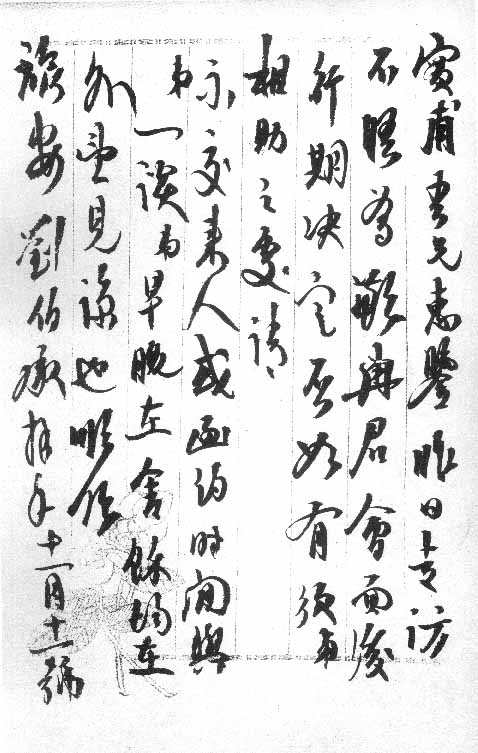 甫吾兄惠鑒昨日访
不晤為歉與君會面後
行期决定否如有須弟
相助之處請、
示交来人或函约时间與
弟一谈弟早晚在舍餘均在
外望見諒也順頌
旅安劉伯承拜手十一月十一號